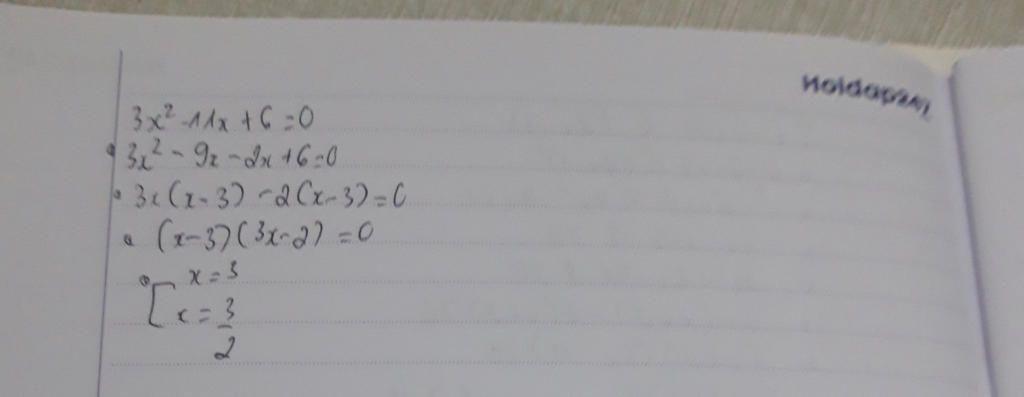 Hoidap247
3x² - 11x + 6 = 0
3x² - 9x - 2x + 6 = 0
3x(x - 3) - 2(x - 3) = 0
(x - 3)(3x - 2) = 0
x = 3
x = 3/2